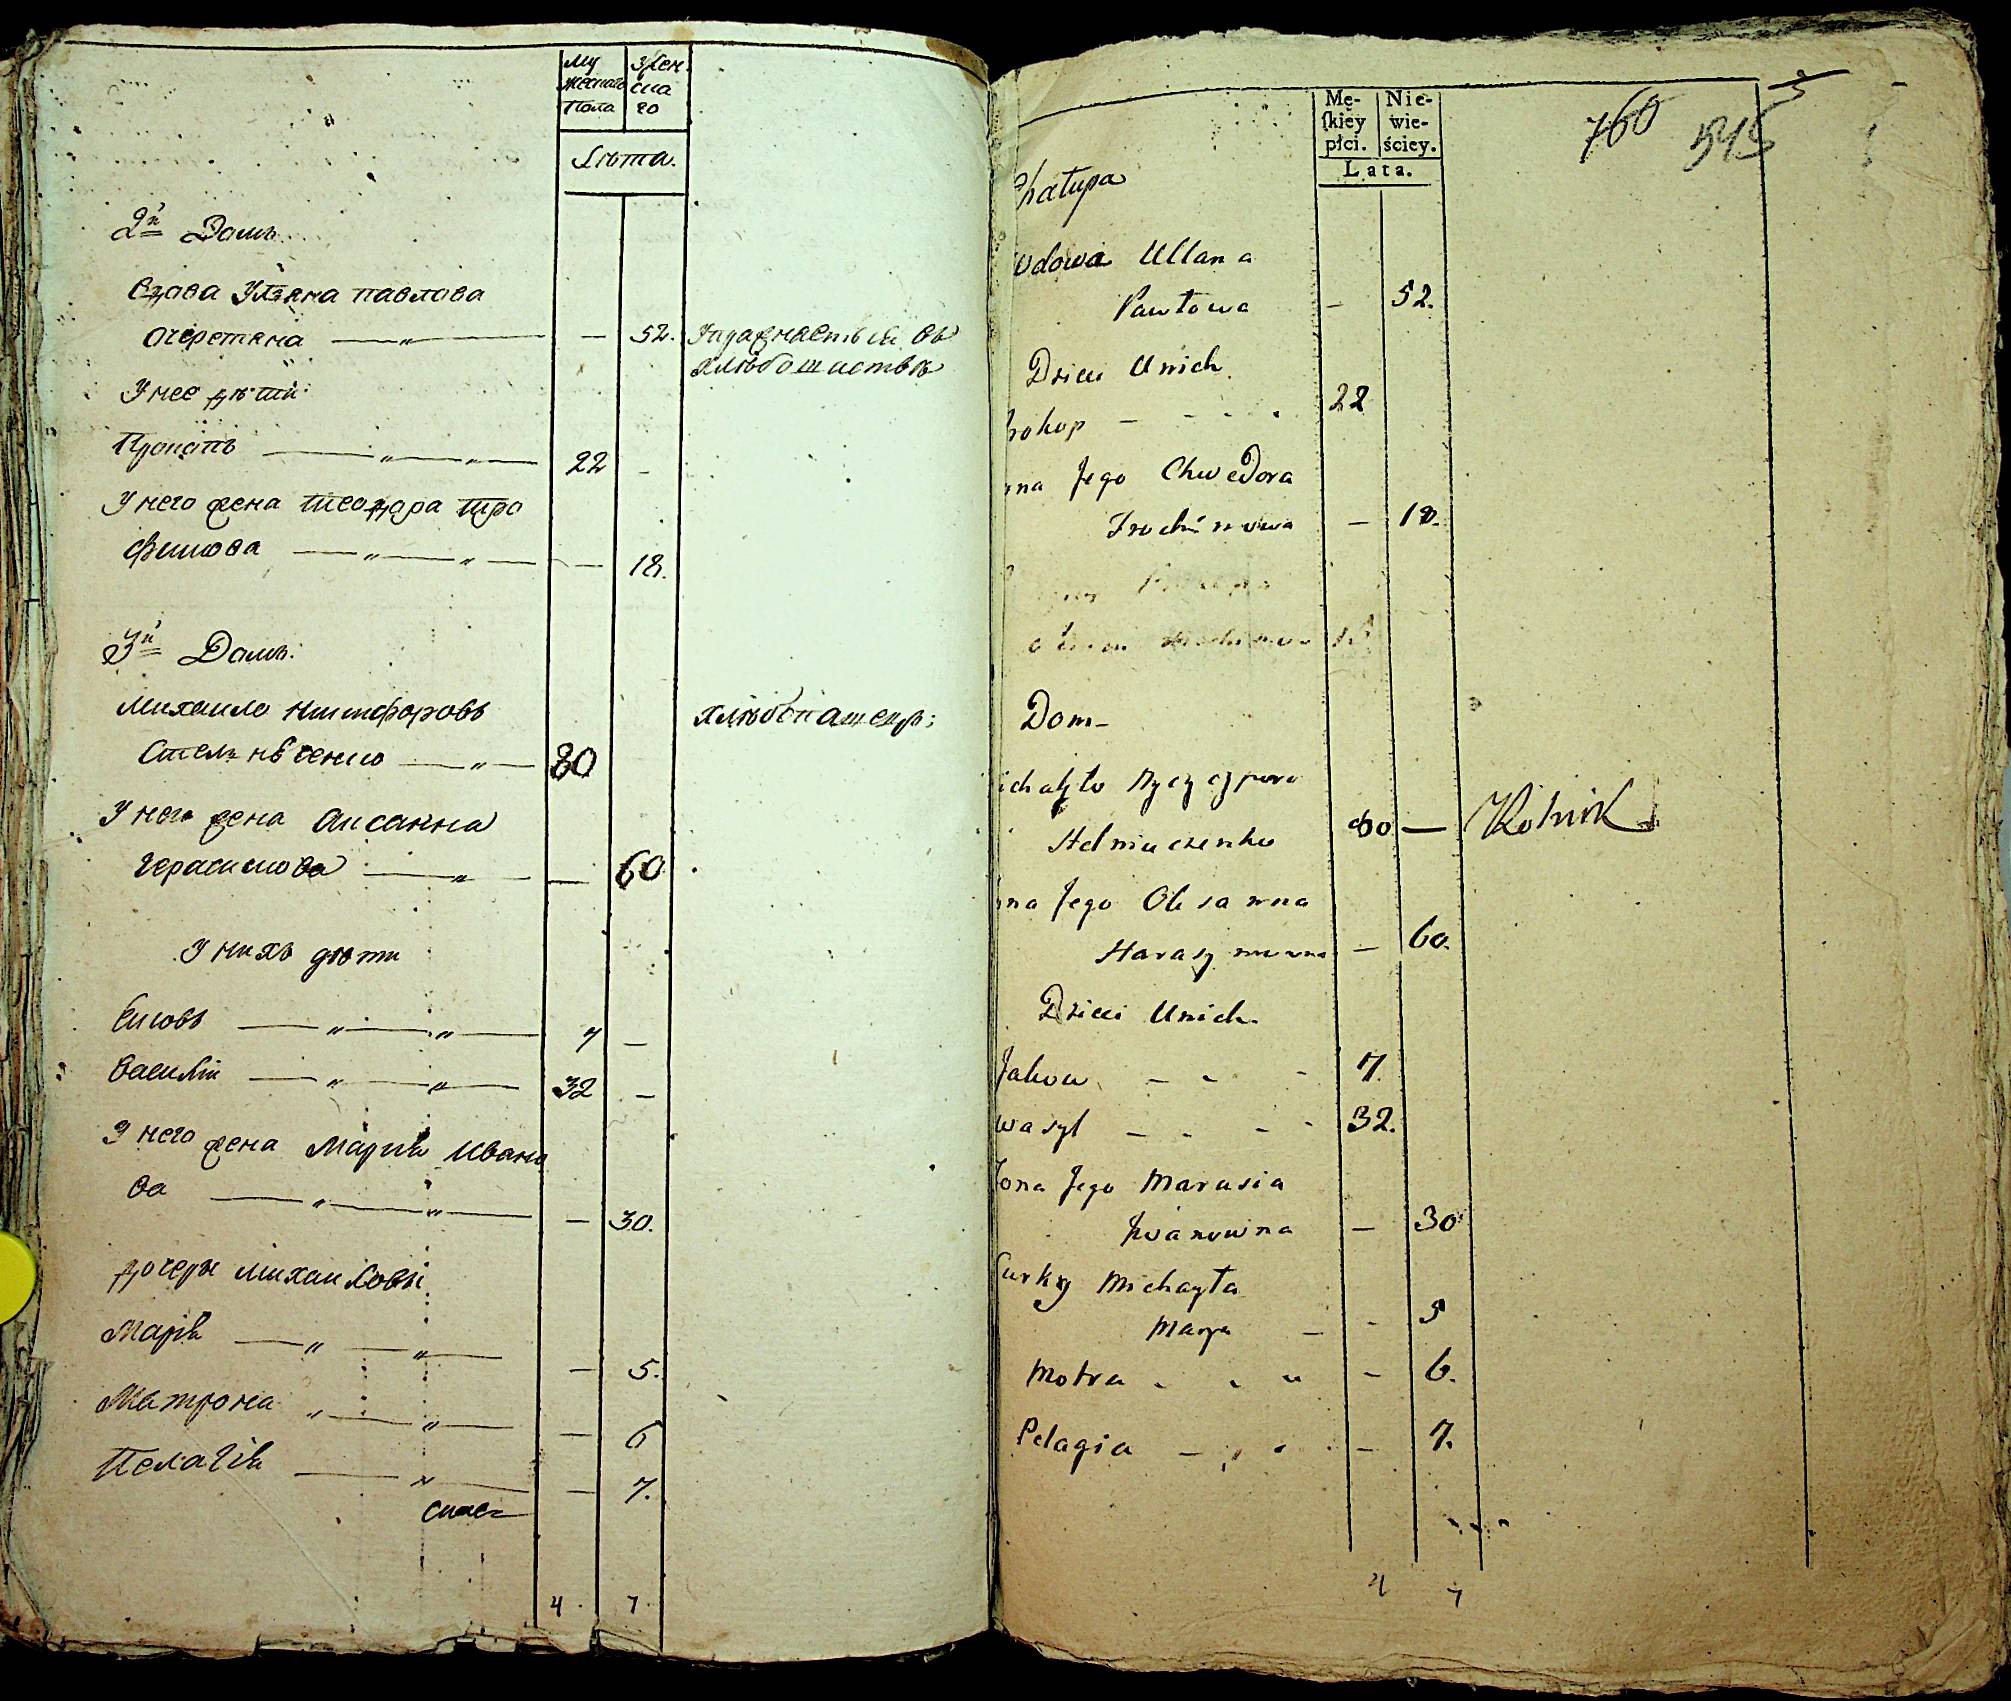 Му
жескаго
Пола
Жен
ска
го
Лѣта.
2й Домъ
Вдова Уляна павлова
Очеретяна — 52. Упражняеться въ
хлѣбопашествѣ
У нее дѣти
Прокопъ 22 —
У него жена Теодора Тро
фимова — 18.
3й Домъ.
Михаило Ничифоровъ хлѣбопашецъ;
80
У него жена Аксанна
Герасимова — 60
У нихъ дѣти
Яковъ 7 —
Василій 32 —
У него жена Марія Ивано
ва — 30.
дочеры Михайловы
Марія — 5.
Матрона — 6
Пелагія — 7.
4 7
Mę-
skiey
płci.
Nie-
wie-
ściey.
Lata.
760 545
Chałupa
wdowa Ullana
Pawłowa — 52.
Dzieci Unich
rokop 22
na Jego Chwedora
Trochimowa — 18.
Dom
ichayło Nyczypora
80 — Rolnik
na Jego Olexanna
Harasymowna — 60.
Dzieci Unich
Jakow 7.
wasyl 32.
Zona Jego Marusia
Iwanowna — 30
Curky Michayła
Marya — 5
Motra — 6.
Pelagia — 7.
4 7